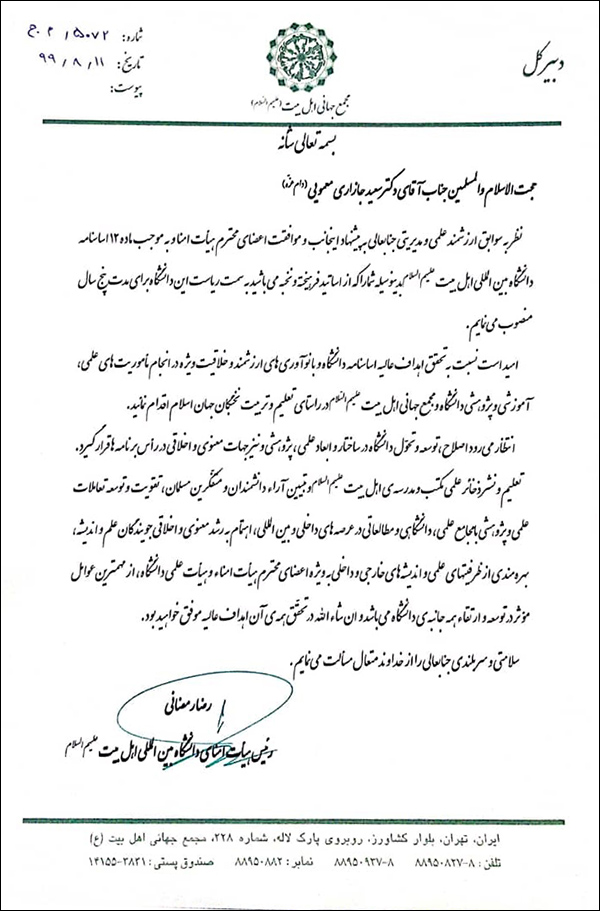 شماره: ۵۰۷۲ / ۲۰ ج
تاریخ: ۹۹/۸/۱۱
پیوست:
دبیرکل
مجمع جهانی اهل بیت (علیهم السلام)
بسمه تعالی شأنه
حجت الاسلام والمسلمین جناب آقای دکتر سعید جازاری معمویی (دام عزّه)
نظر به سوابق ارزشمند علمی و مدیریتی جنابعالی به پیشنهاد اینجانب و موافقت اعضای محترم هیأت امنا و به موجب ماده ۱۲ اساسنامه
دانشگاه بین المللی اهل بیت علیهم السلام بدینوسیله شما را که از اساتید فرهیخته و نخبه می باشید به سمت ریاست این دانشگاه برای مدت پنج سال
منصوب می نمایم.
امید است نسبت به تحقق اهداف عالیه اساسنامه دانشگاه و با نوآوری های ارزشمند و خلاقیت ویژه در انجام مأموریت های علمی،
آموزشی و پژوهشی دانشگاه و مجمع جهانی اهل بیت علیهم السلام در راستای تعلیم و تربیت نخبگان جهان اسلام اقدام نمائید.
انتظار می رود اصلاح، توسعه و تحوّل دانشگاه در ساختار و ابعاد علمی، پژوهشی و نیز جهات معنوی و اخلاقی در رأس برنامه ها قرار گیرد.
تعلیم و نشر ذخائر علمی مکتب و مدرسه ی اهل بیت علیهم السلام و تبیین آراء دانشمندان و متفکّرین مسلمان، تقویت و توسعه تعاملات
علمی و پژوهشی با مجامع علمی، دانشگاهی و مطالعاتی در عرصه های داخلی و بین المللی، اهتمام به رشد معنوی و اخلاقی جویندگان علم و اندیشه،
بهره مندی از ظرفیتهای علمی و اندیشه های خارجی و داخلی به ویژه اعضای محترم هیأت امناء و هیأت علمی دانشگاه، از مهمترین عوامل
مؤثر در توسعه و ارتقاء همه جانبه ی دانشگاه می باشد و ان شاء الله در تحقّق همه ی آن اهداف عالیه موفق خواهید بود.
سلامتی و سربلندی جنابعالی را از خداوند متعال مسألت می نمایم.
رضا رمضانی
رئیس هیأت امنای دانشگاه بین المللی اهل بیت علیهم السلام
ایران، تهران، بلوار کشاورز، روبروی پارک لاله، شماره ۲۲۸، مجمع جهانی اهل بیت (ع)
تلفن: ۸-۸۸۹۵۰۸۲۷ ۸-۸۸۹۵۰۹۲۷ نمابر: ۸۸۹۵۰۸۸۲ صندوق پستی: ۳۸۳۱-۱۴۱۵۵